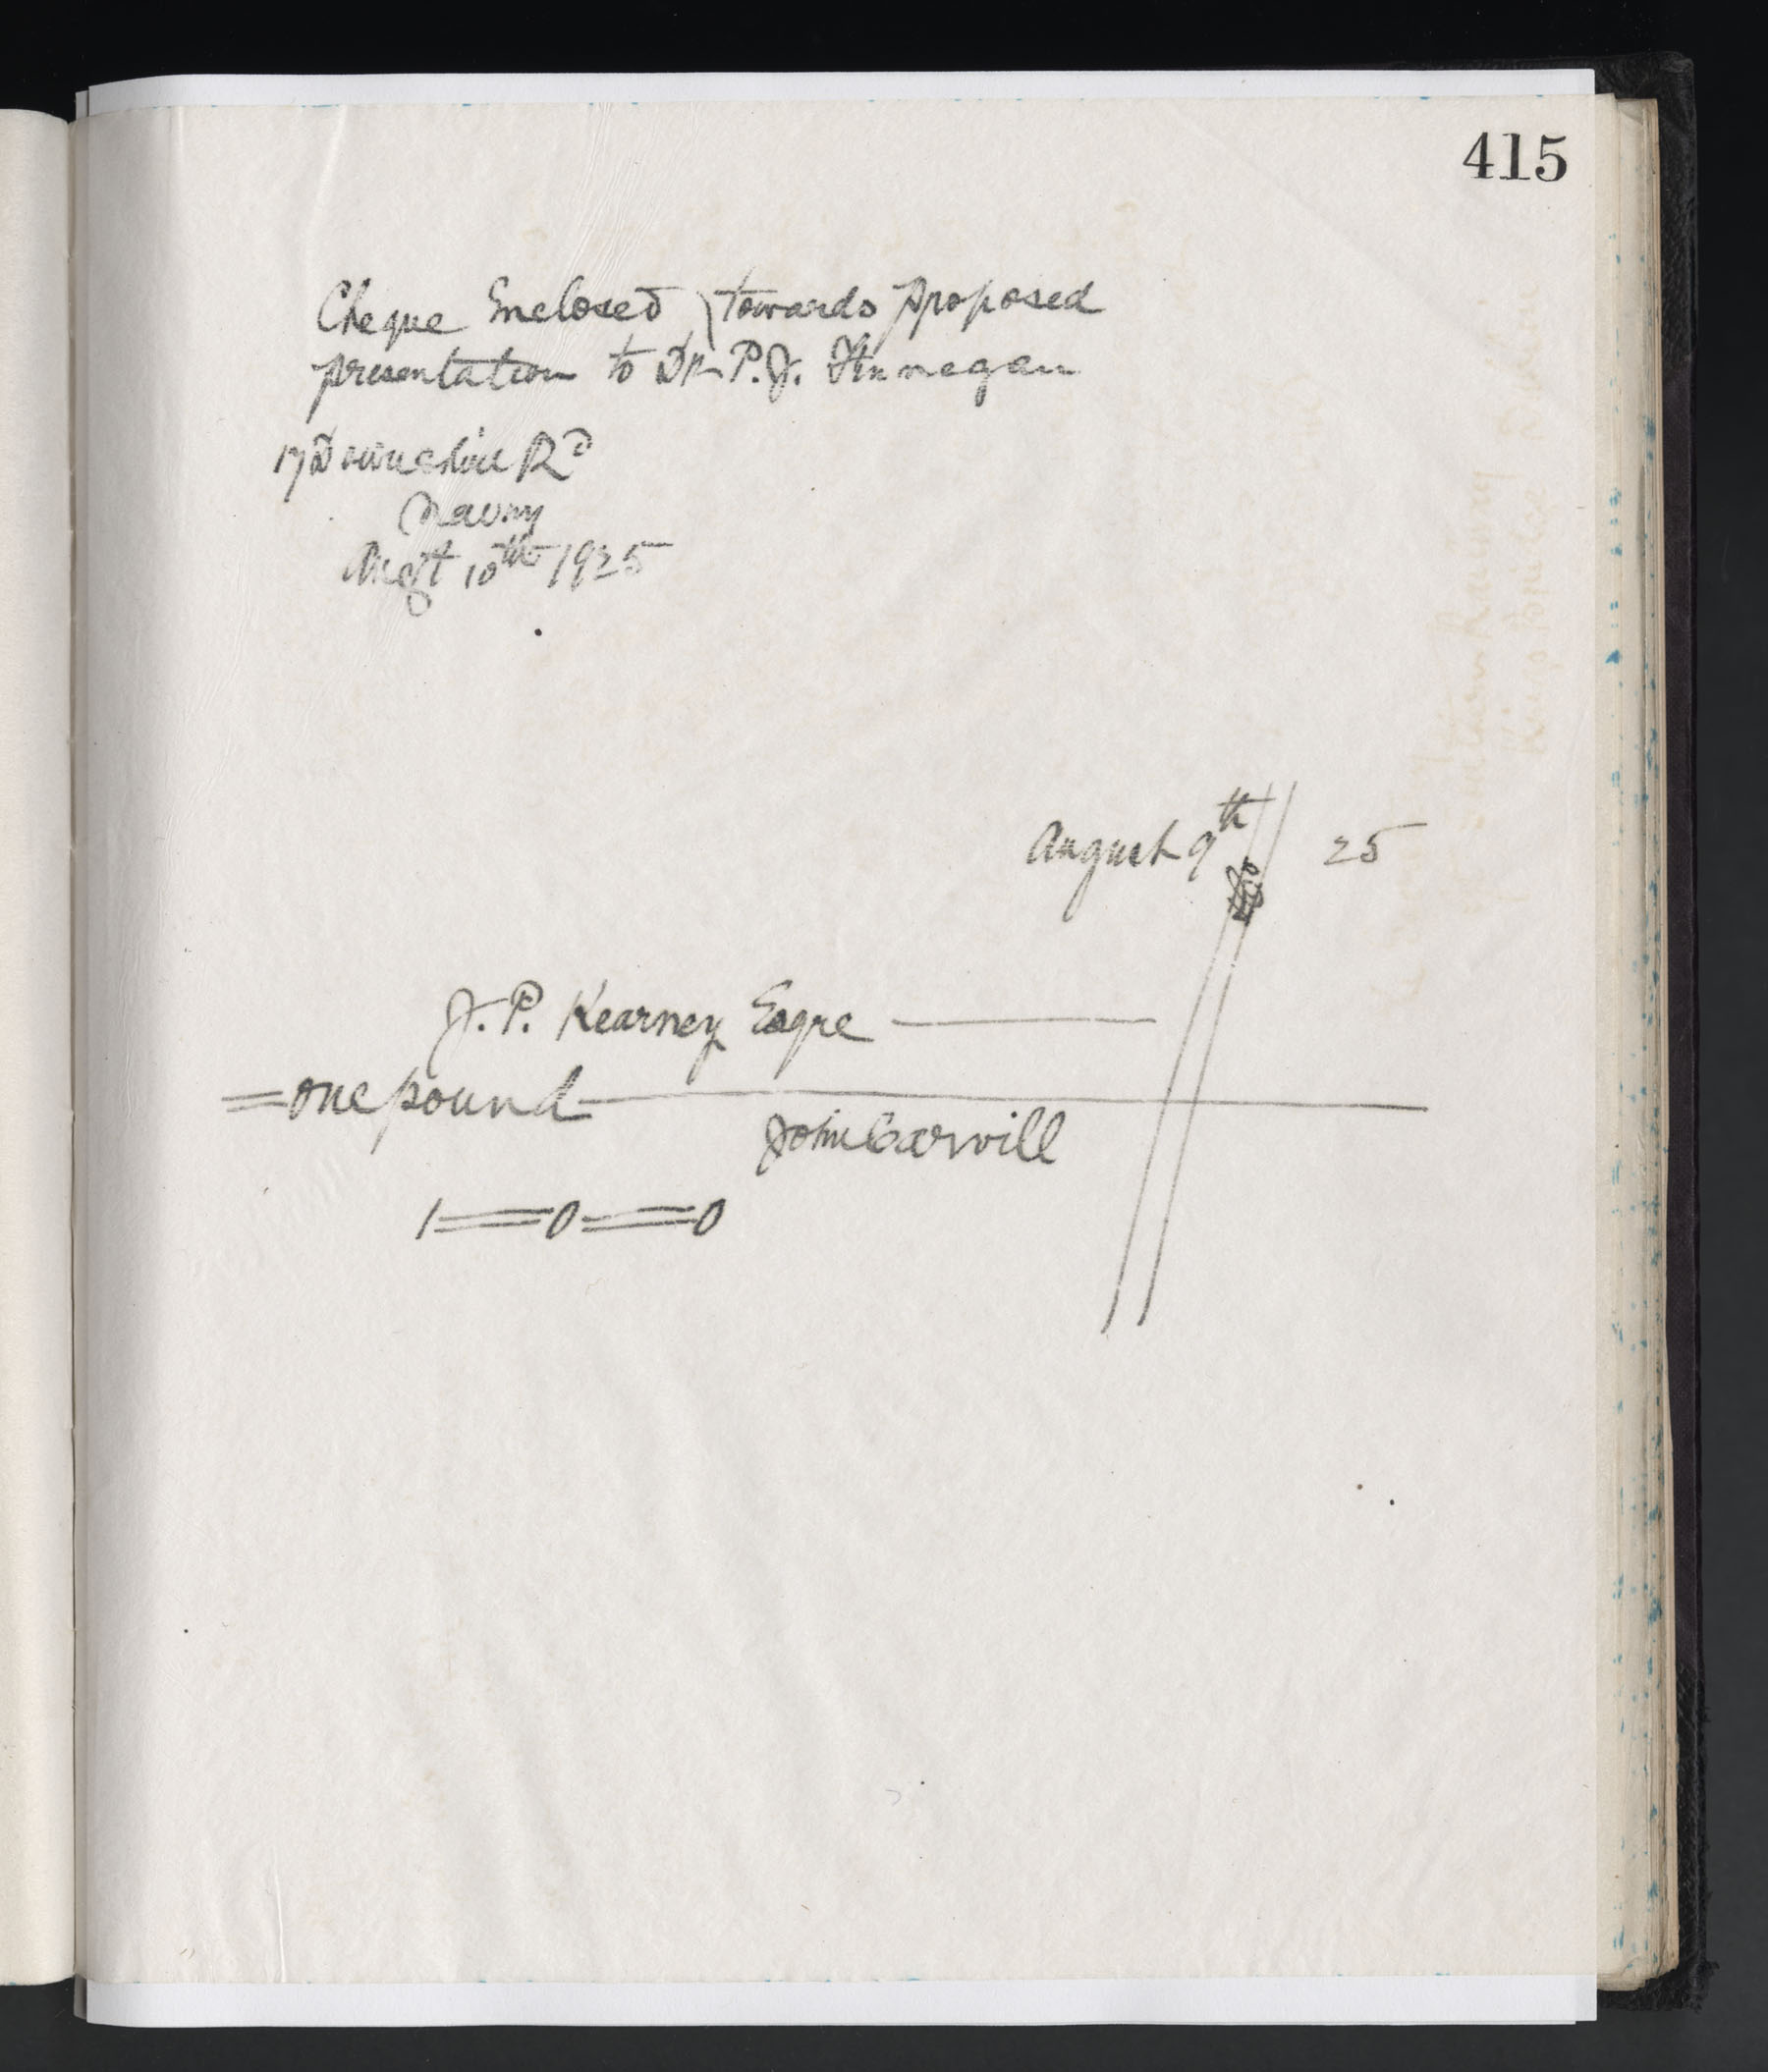 415
Cheque Enclosed towards proposed
presentation to Dr P.J. Finnegan
17 Downshire Rd
Newry
Augst 10th 1925
August 9th 25
J. P. Kearney Esqre
= one pound
John Carvill
1 = 0 = 0